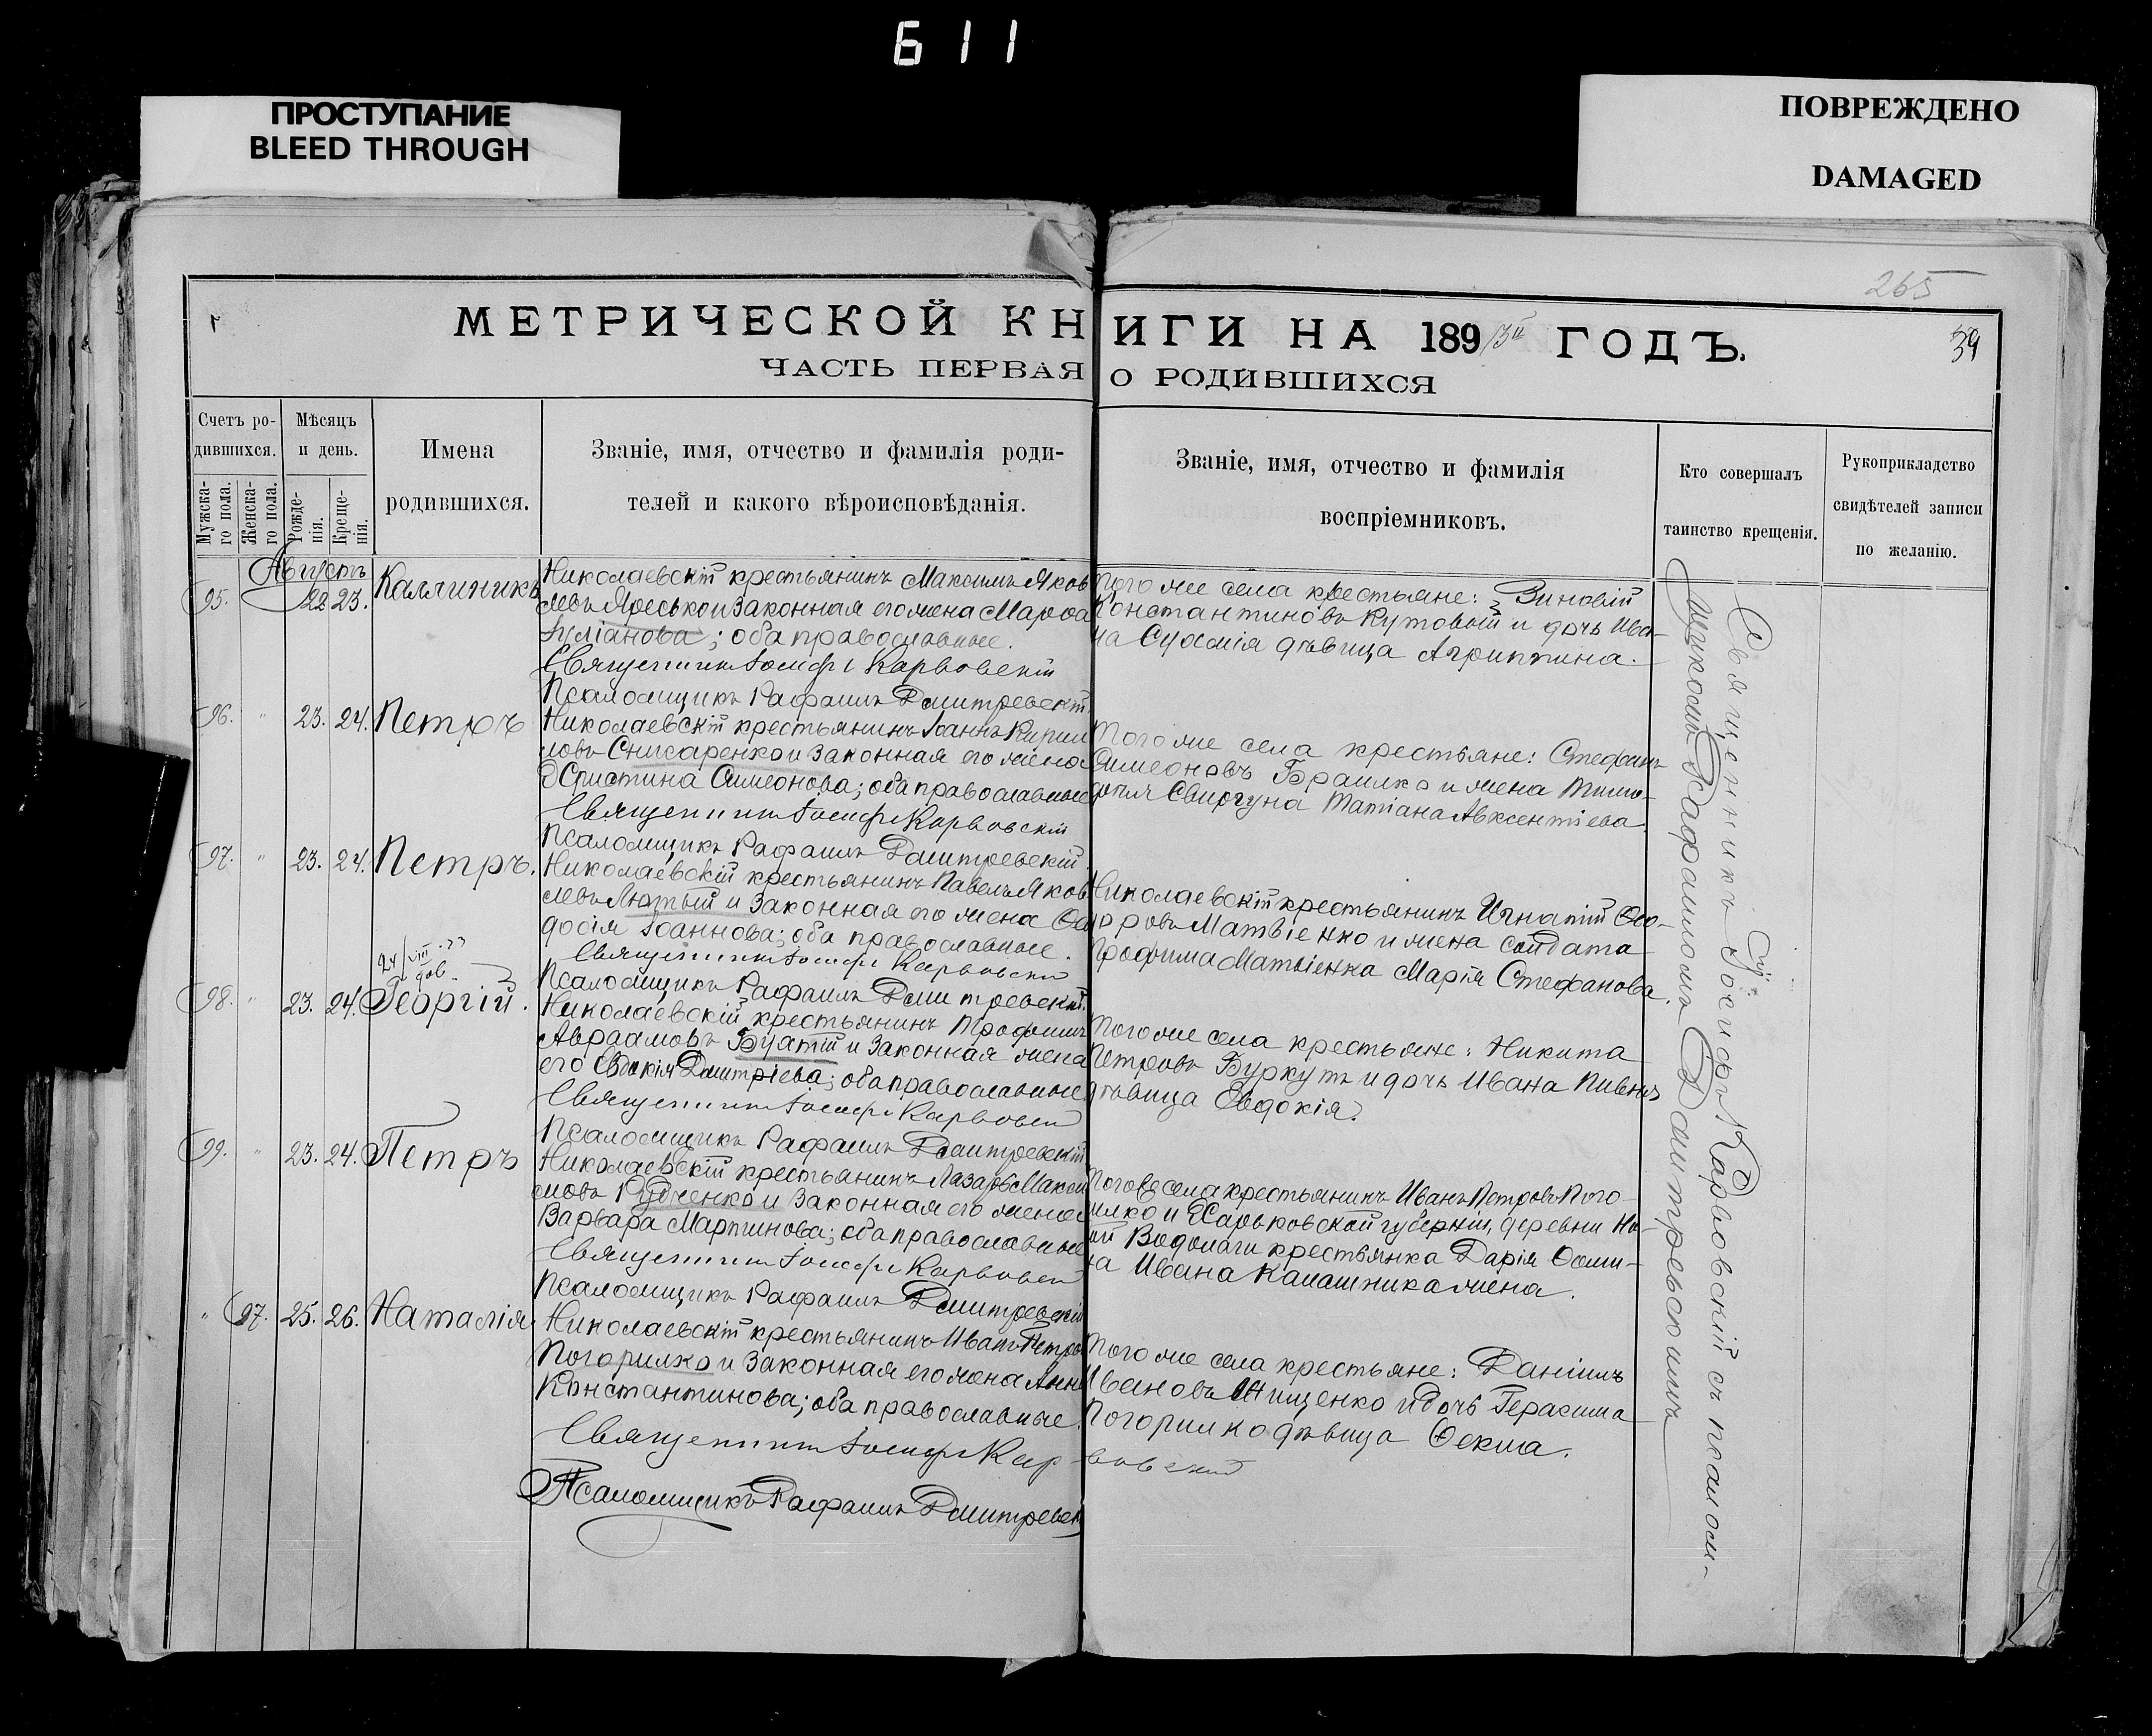 611
ПРОСТУПАНИЕ
BLEED THROUGH
ПОВРЕЖДЕНО
DAMAGED
265
МЕТРИЧЕСКОЙ КНИГИ НА 1893й ГОДЪ.
39
ЧАСТЬ ПЕРВАЯ О РОДИВШИХСЯ
Счетъ ро-
дившихся.
Мужска-
го пола.
Женска-
го пола.
Мѣсяцъ
и день.
Рожде-
нія.
Креще-
нія.
Имена
родившихся.
Званіе, имя, отчество и фамилія роди-
телей и какого вѣроисповѣданія.
Званіе, имя, отчество и фамилія
воспріемниковъ.
Кто совершалъ
таинство крещенія.
Рукоприкладство
свидѣтелей записи
по желанію.
Августъ
95. 22 23. Каллиникъ
Николаевскій крестьянинъ Максимъ Яков
левъ Яресько и законная его жена Марѳа
Іуліанова; оба православные.
Священникъ Іосифъ Карвовскій
Псаломщикъ Рафаилъ Дмитревскій
Того же села крестьяне: Зиновій
Константиновъ Кутовый и дочь Ива-
на Сухомія дѣвица Агриппина.
96. " 23. 24. Петръ
Николаевскій крестьянинъ Іоаннъ Кирил
ловъ Снисаренко и законная его жена
Христина Симеонова; оба православные
Священникъ Іосифъ Карвовскій
Псаломщикъ Рафаилъ Дмитревскій
Того же села крестьяне: Стефанъ
Симеоновъ Браилко и жена Тимо-
фея Свиргуна Татіана Авксентіева.
97. " 23. 24. Петръ.
Николаевскій крестьянинъ Павелъ Яков
левъ Лютый и законная его жена Ѳео
досія Іоаннова; оба православные.
Священникъ Іосифъ Карвовскій
Псаломщикъ Рафаилъ Дмитревскій
Николаевскій крестьянинъ Игнатій Ѳео-
доровъ Матвіенко и жена солдата
Трофима Матвіенка Марія Стефанова.
24/VIII
дов.
98. " 23. 24. Георгій.
Николаевскій крестьянинъ Трофимъ
Авраамовъ Буатій и законная жена
его Евдокія Димитріева; оба православные.
Священникъ Іосифъ Карвовскій
Псаломщикъ Рафаилъ Дмитревскій
Того же села крестьяне: Никита
Петровъ Буркутъ и дочь Ивана Пивня
дѣвица Евдокія.
99. " 23. 24. Петръ
Николаевскій крестьянинъ Лазарь Макси
мовъ Рудченко и законная его жена
Варвара Мартинова; оба православные
Священникъ Іосифъ Карвовскій
Псаломщикъ Рафаилъ Дмитревскій
Того же села крестьянинъ Иванъ Петровъ Пого-
рилко и Харьковской губерніи, деревни Но-
ой Водолаги крестьянка Дарія Ѳоми-
на Ивана Калашника жена.
" 97. 25. 26. Наталія
Николаевскій крестьянинъ Иванъ Петров
Погорилко и законная его жена Анна
Константинова; оба православные.
Священникъ Іосифъ Карвовскій
Псаломщикъ Рафаилъ Дмитревск
Того же села крестьяне: Даніилъ
Ивановъ Тищенко и дочь Герасима
Погорилко дѣвица Ѳекла.
Священникъ Іосифъ Карвовскій съ псалом-
щикомъ Рафаиломъ Дмитревскимъ